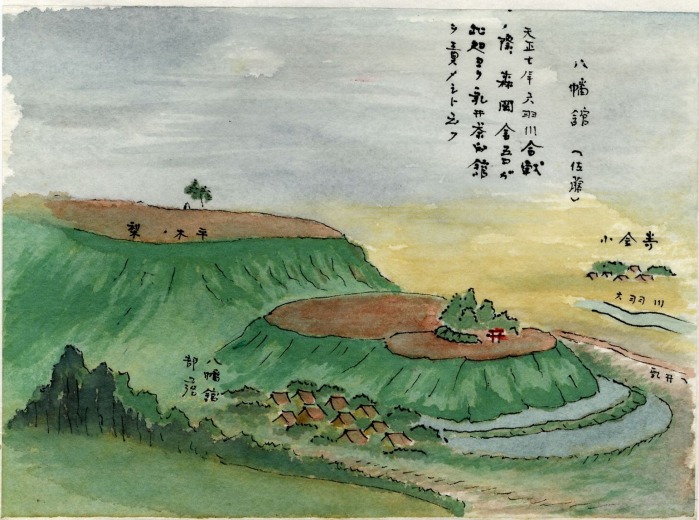 八幡館(佐藤)
天正七年六羽川合戦
ノ際、森岡金吾ガ
此処ヨリ乳井茶臼館
ヲ責メシト云フ
小金崎
六羽川
乳井へ
平木ノ梨
八幡館
部落